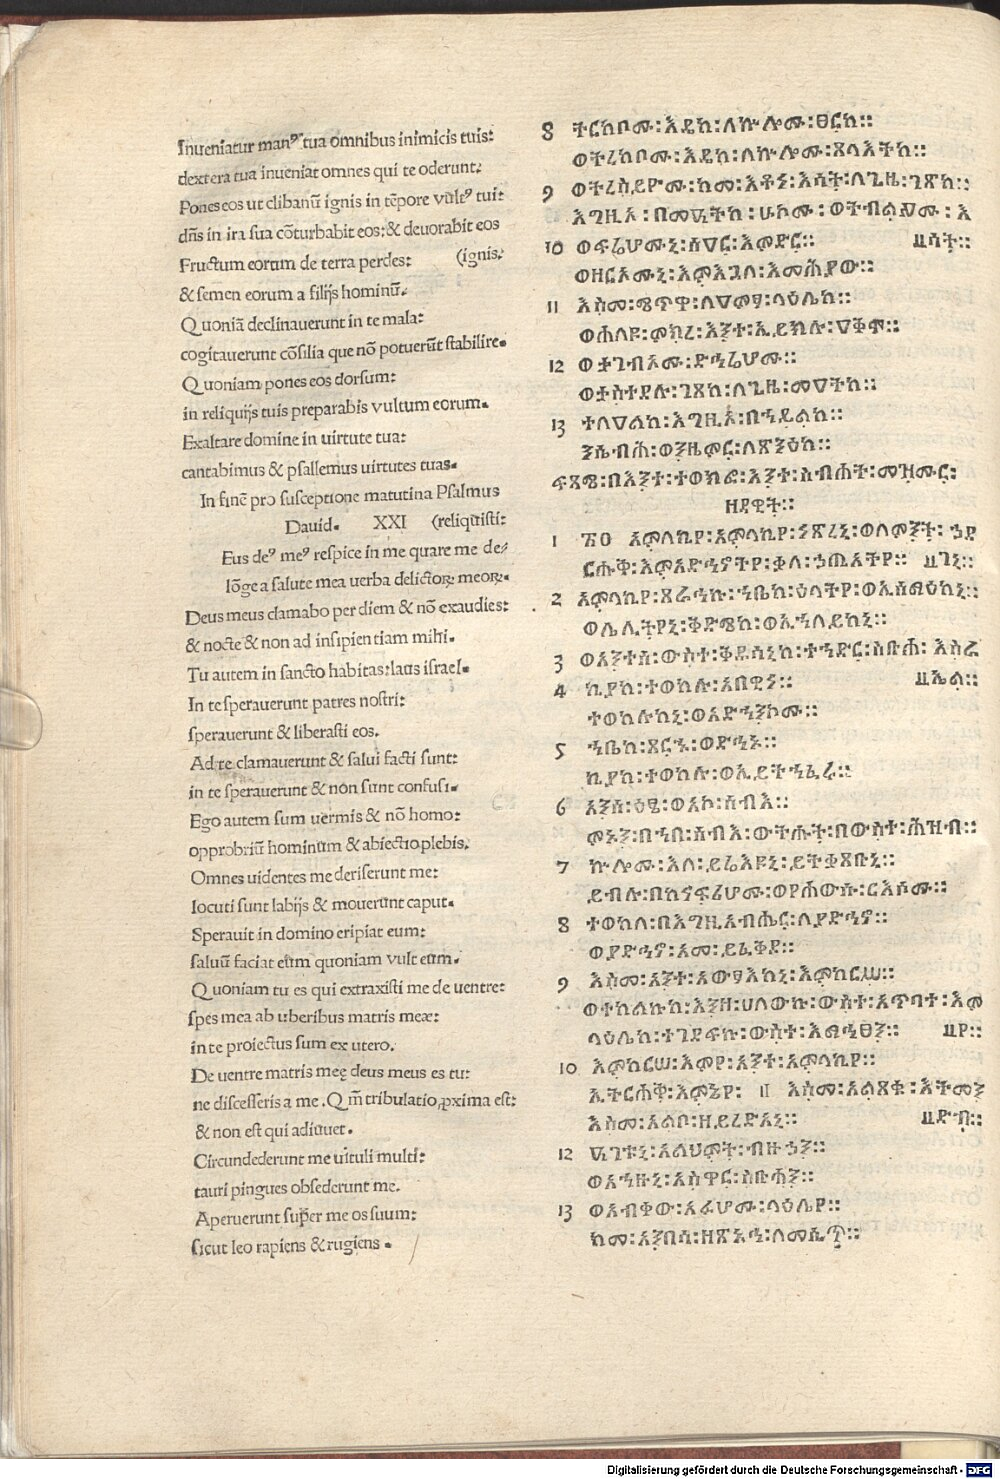 Inueniatur man⁹ tua omnibus inimicis tuis:
dextera tua inueniat omnes qui te oderunt:
Pones eos ut clibanū ignis in tēpore vult⁹ tui:
dñs in ira sua cōturbabit eos: & deuorabit eos
Fructum eorum de terra perdes: (ignis.
& semen eorum a filijs hominū.
Quoniā declinauerunt in te mala:
cogitauerunt cōsilia que nō potuerūt stabilire.
Quoniam pones eos dorsum:
in reliquijs tuis preparabis vultum eorum.
Exaltare domine in uirtute tua:
cantabimus & psallemus uirtutes tuas.
In finē pro susceptione matutina Psalmus
Dauid. XXI (reliquisti:
Eus de⁹ me⁹ respice in me quare me de/
lōge a salute mea uerba delictoꝝ meoꝝ.
Deus meus clamabo per diem & nō exaudies:
& nocte & non ad insipientiam mihi.
Tu autem in sancto habitas: laus israel.
In te sperauerunt patres nostri:
sperauerunt & liberasti eos.
Ad te clamauerunt & salui facti sunt:
in te sperauerunt & non sunt confusi.
Ego autem sum uermis & nō homo:
opprobriū hominum & abiectio plebis.
Omnes uidentes me deriserunt me:
locuti sunt labijs & mouerūnt caput.
Sperauit in domino eripiat eum:
saluū faciat eūm quoniam vult eum.
Quoniam tu es qui extraxisti me de uentre:
spes mea ab uberibus matris meæ:
in te proiectus sum ex utero.
De uentre matris meę deus meus es tu:
ne discesseris a me. Qm̄ tribulatio ꝓxima est:
& non est qui adiuuet.
Circundederunt me uituli multi:
tauri pingues obsederunt me.
Aperuerunt sup̄er me os suum:
sicut leo rapiens & rugiens.
8 ትርከቦሙ፡እዴከ፡ለኵሎሙ፡ፀርከ።
ወትረከቦሙ፡እዴከ፡ለኵሎሙ፡ጸላእትከ።
9 ወትረስዮሙ፡ከመ፡እቶነ፡እሳት፡ለጊዜ፡ገጽከ።
እግዚአ፡በመዓትከ፡ሁኮሙ፡ወትብልዖሙ፡እ
10 ወፍሬሆሙኒ፡ሰዓር፡እምድር። ሳት።
ወዘርአሙኒ፡እምእጓለ፡እመሕያው።
11 እስመ፡ሜጥዋ፡ለዓመፃ፡ላዕሌከ።
ወሐለዩ፡ምክረ፡እንተ፡ኢይክሉ፡ዓቅመ።
12 ወትገብኦሙ፡ድኅሬሆሙ።
ወትስተዴሉ፡ገጸከ፡ለጊዜ፡መዓትከ።
13 ተለዓልከ፡እግዚኦ፡በኀይልከ።
ንሴብሕ፡ወንዜምር፡ለጽንዕከ።
ፍጻሜ፡በእንተ፡ተወክፎ፡እንተ፡ስብሐት፡መዝሙር፡
ዘዳዊት።
1 አምላኪየ፡አምላኪየ፡ነጽረኒ፡ወለምንት፡ኃደ
ርሑቅ፡እምአድኅኖትየ፡ቃለ፡ኃጢአትየ። ገኒ።
2 አምላኪየ፡ጸራኅኩ፡ኀቤከ፡ዕለትየ፡ወኢሰማዕከኒ።
ወሌሊትየኒ፡ቅድሜከ፡ወኢኀለይከኒ።
3 ወአንተሰ፡ውስተ፡ቅዱሳኒከ፡ተኀድር፡ስቡሕ፡እስራ
4 ኪያከ፡ተወከሉ፡አበዊነ። ኤል።
ተወከሉከኒ፡ወአድኀንኮሙ።
5 ኀቤከ፡ጸርኁ፡ወድኅኑ።
ኪያከ፡ተወከሉ፡ወኢይትኀፈሩ።
6 አንሰ፡ዕፄ፡ወአኮ፡ሰብእ።
ምኑን፡በኀበ፡ሰብእ፡ውትሑት፡በውስተ፡ሕዝብ።
7 ኵሎሙ፡እለ፡ይሬእዩኒ፡ይትቃጸቡኒ።
ይብሉ፡በከናፍሪሆሙ፡ወየሐውሱ፡ርእሶሙ።
8 ተወከለ፡በእግዚአብሔር፡ለያድኅኖ።
ወያድኅኖ፡እመ፡ይፈቅዶ።
9 እስመ፡አንተ፡አውፃእከኒ፡እምከርሥ።
ወተከልኩከ፡እንዘ፡ሀለውኩ፡ውስተ፡አጥባተ፡እም
ላዕሌከ፡ተገደፍኩ፡ውስተ፡እማኅፀን። የ።
10 እምከርሠ፡እምየ፡አንተ፡አምላኪየ።
ኢትርሐቅ፡እምኔየ፡ 11 እስመ፡አልጸቀ፡እትመን
እስመ፡አልቦ፡ዘይረድአኒ። ዳቤ።
12 ዓገቱኒ፡አልህምት፡ብዙኃን።
ወአኀዙኒ፡አስዋር፡ስቡሓን።
13 ወአብቀው፡አፉሆሙ፡ላዕሌየ።
ከመ፡አንበሳ፡ዘጽኑዕ፡ለመሢጥ።